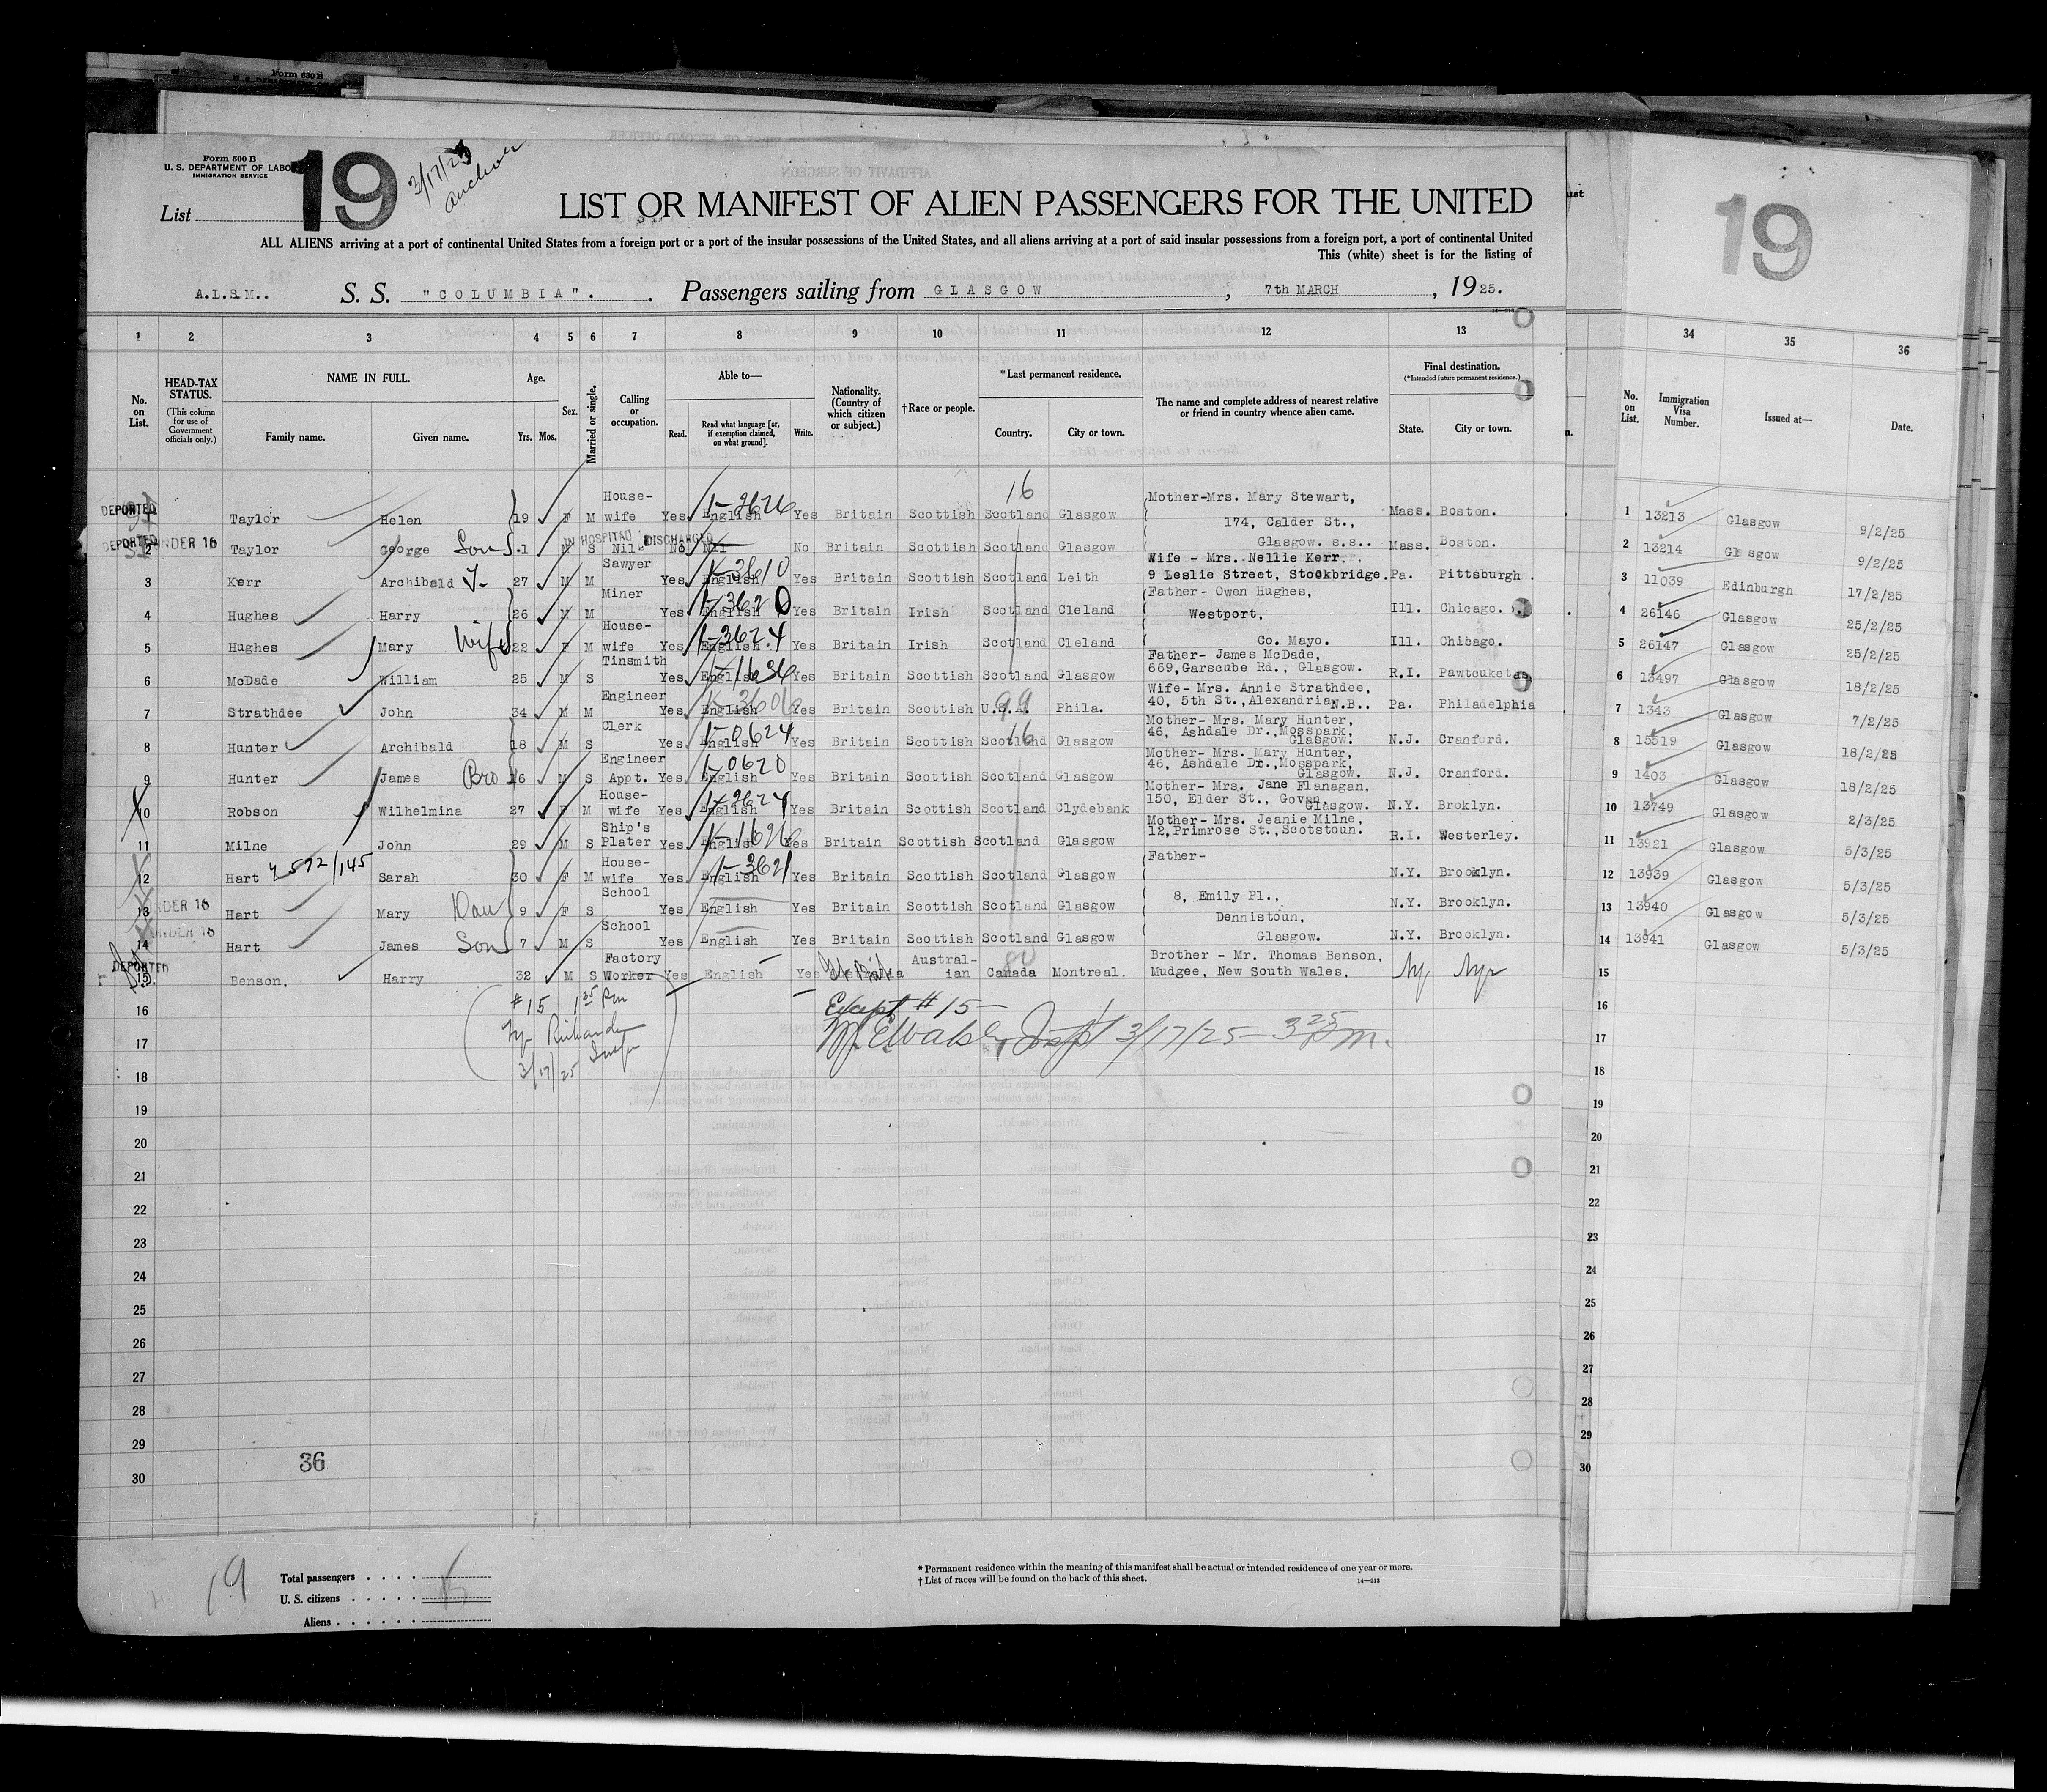 Form 630 B
Form 500 B
U. S. DEPARTMENT OF LABO
IMMIGRATION SERVICE
List
19
3/17/25
Anchor
LIST OR MANIFEST OF ALIEN PASSENGERS FOR THE UNITED
ALL ALIENS arriving at a port of continental United States from a foreign port or a port of the insular possessions of the United States, and all aliens arriving at a port of said insular possessions from a foreign port, a port of continental United
This (white) sheet is for the listing of
A.L.S.M.. S. S. "COLUMBIA". Passengers sailing from GLASGOW, 7th MARCH, 1925.
19
1 2 3 4 5 6 7 8 9 10 11 12 13 34 35 36
No. on List.
HEAD-TAX STATUS.
(This column for use of Government officials only.)
NAME IN FULL.
Family name. Given name.
Age.
Yrs. Mos.
Sex.
Married or single.
Calling or occupation.
Able to—
Read. Read what language [or, if exemption claimed, on what ground]. Write.
Nationality. (Country of which citizen or subject.)
†Race or people.
*Last permanent residence.
Country. City or town.
The name and complete address of nearest relative or friend in country whence alien came.
Final destination.
(*Intended future permanent residence.)
State. City or town.
No. on List.
Immigration Visa Number.
Issued at—
Date.
16
DEPORTED 1 Taylor Helen 19 F M House-wife Yes English 1-3626 Yes Britain Scottish Scotland Glasgow Mother-Mrs. Mary Stewart, Mass. Boston. 1 13213 Glasgow 9/2/25
174, Calder St.,
DEPORTED UNDER 16 2 Taylor George Son 1 M S Nil IN HOSPITAL DISCHARGED No Nil No Britain Scottish Scotland Glasgow Glasgow. s.s.. Mass. Boston. 2 13214 Glasgow 9/2/25
3 Kerr Archibald 27 M M Sawyer Yes English 1-3610 Yes Britain Scottish Scotland Leith Wife - Mrs. Nellie Kerr, 9 Leslie Street, Stockbridge. Pa. Pittsburgh. 3 11039 Edinburgh 17/2/25
4 Hughes Harry 26 M M Miner Yes English 1-3620 Yes Britain Irish Scotland Cleland Father- Owen Hughes, Westport, Ill. Chicago. 4 26146 Glasgow 25/2/25
5 Hughes Mary Wife 22 F M House-wife Yes English. 1-3624 Yes Britain Irish Scotland Cleland Co. Mayo. Ill. Chicago. 5 26147 Glasgow 25/2/25
6 McDade William 25 M S Tinsmith Yes English 1-1636 Yes Britain Scottish Scotland Glasgow Father- James McDade, 669,Garscube Rd., Glasgow. R.I. Pawtucket 6 13497 Glasgow 18/2/25
7 Strathdee John 34 M M Engineer Yes English 1-3606 Yes Britain Scottish U.S.A. 99 Phila. Wife- Mrs. Annie Strathdee, 40, 5th St.,Alexandria N.B.. Pa. Philadelphia 7 1343 Glasgow 7/2/25
8 Hunter Archibald 18 M S Clerk Yes English 1-0624 Yes Britain Scottish Scotland 16 Glasgow Mother- Mrs. Mary Hunter, 46, Ashdale Dr.,Mosspark, Glasgow. N.J. Cranford. 8 15519 Glasgow 18/2/25
9 Hunter James Bro 16 M S Engineer Appt. Yes English 1-0620 Yes Britain Scottish Scotland Glasgow Mother- Mrs. Mary Hunter, 46, Ashdale Dr.,Mosspark, Glasgow. N.J. Cranford. 9 1403 Glasgow 18/2/25
10 Robson Wilhelmina 27 F M House-wife Yes English 1-3624 Yes Britain Scottish Scotland Clydebank Mother- Mrs. Jane Flanagan, 150, Elder St., Govan, Glasgow. N.Y. Broklyn. 10 13749 Glasgow 2/3/25
11 Milne John 29 M S Ship's Plater Yes English 1-1626 Yes Britain Scottish Scotland Glasgow Mother- Mrs. Jeanie Milne, 12,Primrose St.,Scotstoun. R.I. Westerley. 11 13921 Glasgow 5/3/25
12 Hart 2572/145 Sarah 30 F M House-wife Yes English 1-3621 Yes Britain Scottish Scotland Glasgow Father- N.Y. Brooklyn. 12 13939 Glasgow 5/3/25
UNDER 16 13 Hart Mary Dau 9 F S School Yes English Yes Britain Scottish Scotland Glasgow 8, Emily Pl., N.Y. Brooklyn. 13 13940 Glasgow 5/3/25
Dennistoun,
UNDER 16 14 Hart James Son 7 M S School Yes English Yes Britain Scottish Scotland Glasgow Glasgow. N.Y. Brooklyn. 14 13941 Glasgow 5/3/25
DEPORTED 15 Benson, Harry 32 M S Factory Worker Yes English Yes Australia Austral-ian Canada 80 Montreal. Brother - Mr. Thomas Benson, Mudgee, New South Wales. Ny Nyc 15
16 #15 1 25 Pm Except #15 16
17 3/17/25 - 3 25 P.m. 17
18 3/17/25 Insp 18
19 19
20 20
21 21
22 22
23 23
24 24
25 25
26 26
27 27
28 28
29 29
36
30 30
19
Total passengers
U. S. citizens
Aliens
* Permanent residence within the meaning of this manifest shall be actual or intended residence of one year or more.
† List of races will be found on the back of this sheet.
14—213